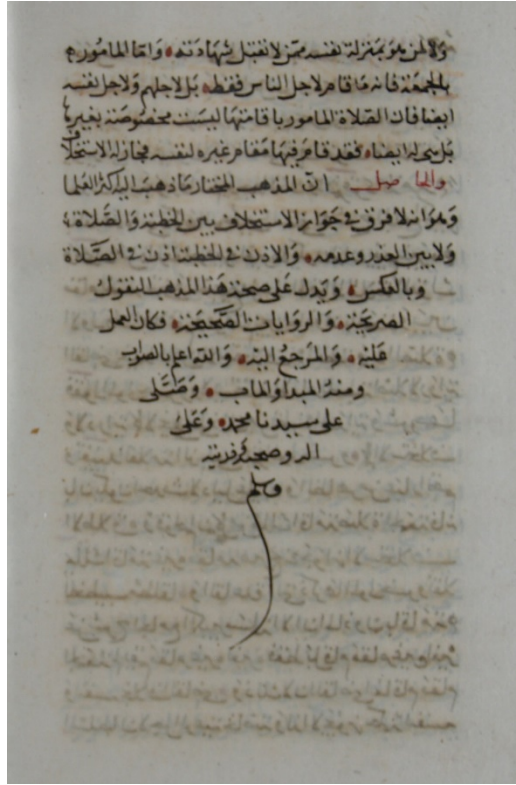 ولا لمن هو بمنزلة نفسه ممن لا تقبل شهادته واما المامور
بالجمعة فانه ما قام لاجل الناس فقط بل لاجلهم ولاجل نفسه
ايضا فان الصلاة المامور باقامتها ليست مخصوصة بغيره
بل هى له ايضا فقد قام فيها مقام غيره لنفسه فجاز له الاستخلاف
والحاصل ان المذهب المختار ما ذهب اليه اكثر العلما
وهو انه لا فرق في جواز الاستخلاف بين الخطبة والصلاة
ولا بين العذر وعدمه والاذن في الخطبة اذن في الصلاة
وبالعكس ويدل على صحة هذا المذهب النقول
الصريحة والروايات الصحيحة فكان العمل
عليه والمرجع اليه والله اعلم بالصواب
ومنه المبدا والماب وصلى
على سيدنا محمد وعلى
اله وصحبه وذريته
وسلم